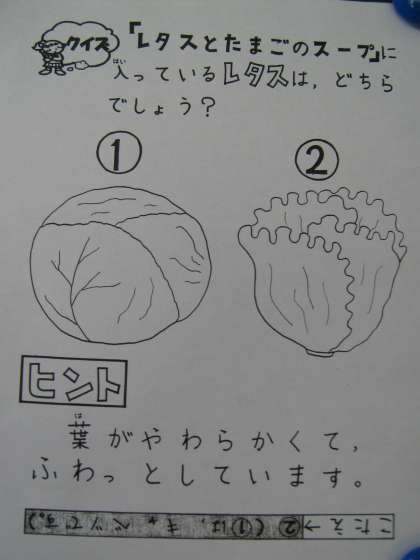 クイズ
「レタスとたまごのスープ」に
入っているレタスは、どちら
でしょう？
① ②
ヒント
葉がやわらかくて、
ふわっとしています。
こたえ→②(①は、キャベツです。)